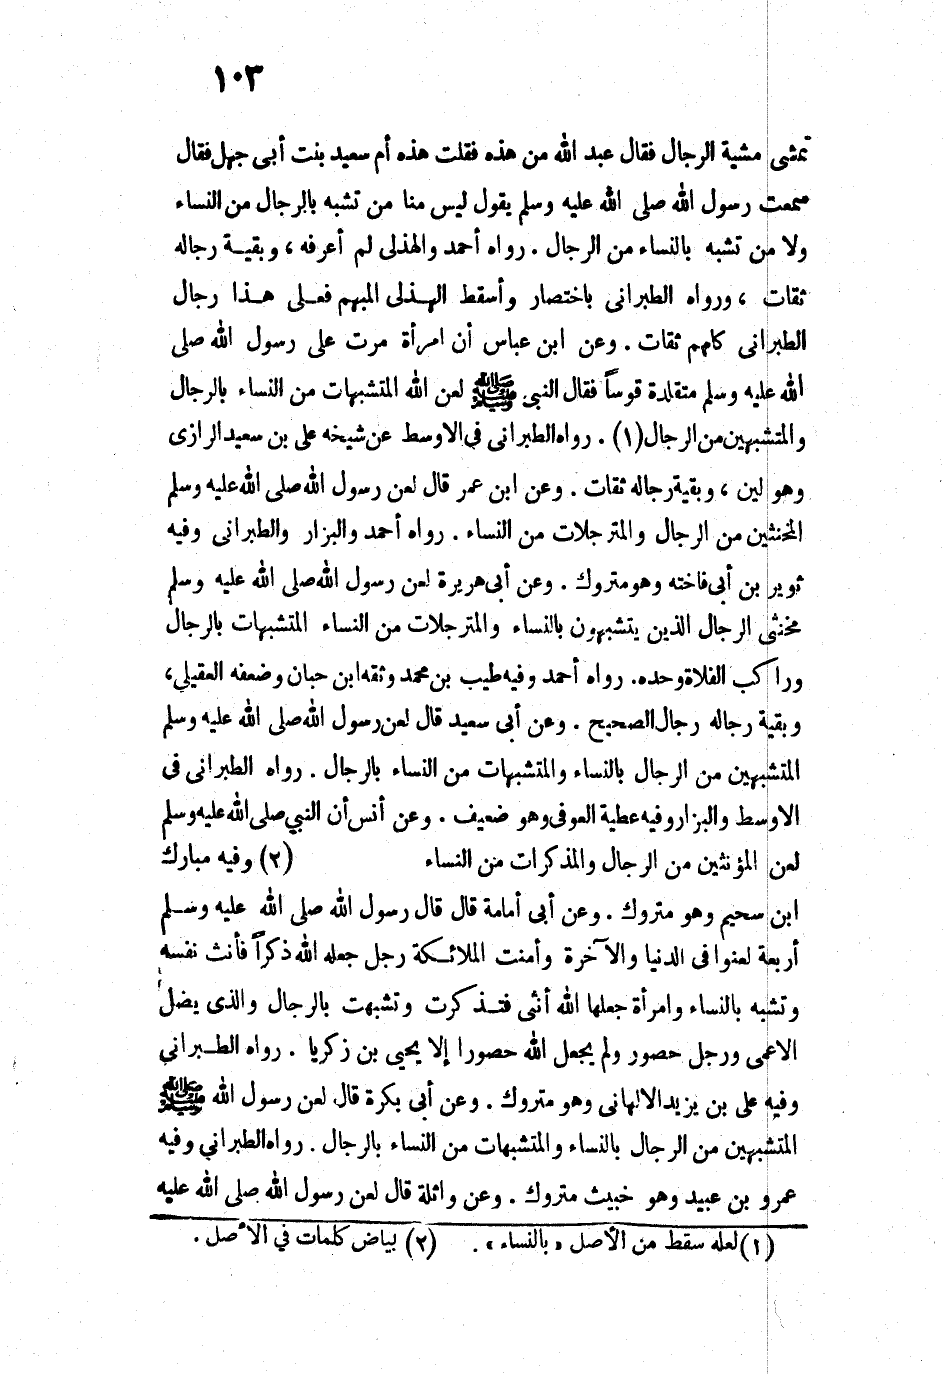 ١٠٣
تمشى مشية الرجال فقال عبد الله من هذه فقلت هذه أم سعيد بنت أبى جهل فقال
سمعت رسول الله صلى الله عليه وسلم يقول ليس منا من تشبه بالرجال من النساء
ولا من تشبه بالنساء من الرجال . رواه أحمد والهذلى لم أعرفه ، وبقيـة رجاله
ثقات ، ورواه الطبرانى باختصار وأسقط الهـذلى المبهم فعـلى هـذا رجال
الطبرانى كلهم ثقات . وعن ابن عباس أن امرأة مرت على رسول الله صلى
الله عليه وسلم متقلدة قوساً فقال النبى ﷺ لعن الله المتشبهات من النساء بالرجال
والمتشبهين من الرجال (١) . رواه الطبرانى فى الاوسط عن شيخه على بن سعيد الرازى
وهو لين ، وبقية رجاله ثقات . وعن ابن عمر قال لعن رسول الله صلى الله عليه وسلم
المخنثين من الرجال والمترجلات من النساء . رواه أحمد والبزار والطبرانى وفيه
ثوير بن أبى فاخته وهو متروك . وعن أبى هريرة لعن رسول الله صلى الله عليه وسلم
مخنثى الرجال الذين يتشبهون بالنساء والمترجلات من النساء المتشبهات بالرجال
وراكب الفلاة وحده. رواه أحمد وفيه طيب بن محمد وثقه ابن حبان وضعفه العقيلي،
وبقية رجاله رجال الصحيح . وعن أبى سعيد قال لعن رسول الله صلى الله عليه وسلم
المتشبهين من الرجال بالنساء والمتشبهات من النساء بالرجال . رواه الطبرانى فى
الاوسط والبزار وفيه عطية العوفى وهو ضعيف . وعن أنس أن النبي صلى الله عليه وسلم
لعن المؤنثين من الرجال والمذكرات من النساء (٢) وفيه مبارك
ابن سحيم وهو متروك . وعن أبى أمامة قال قال رسول الله صلى الله عليه وسـلم
أربعة لعنوا فى الدنيا والآخرة وأمنت الملائـكة رجل جعله الله ذكراً فأنث نفسه
وتشبه بالنساء وامرأة جعلها الله أنثى فتـذكرت وتشبهت بالرجال والذى يضل
الاعمى ورجل حصور ولم يجعل الله حصورا إلا يحيى بن زكريا . رواه الطـبراني
وفيه على بن يزيد الالهانى وهو متروك . وعن أبى بكرة قال لعن رسول الله ﷺ
المتشبهين من الرجال بالنساء والمتشبهات من النساء بالرجال . رواه الطبراني وفيه
عمرو بن عبيد وهو خبيث متروك . وعن واثلة قال لعن رسول الله صلى الله عليه
(١) لعله سقط من الأصل «بالنساء» . (٢) بياض كلمات في الأصل .